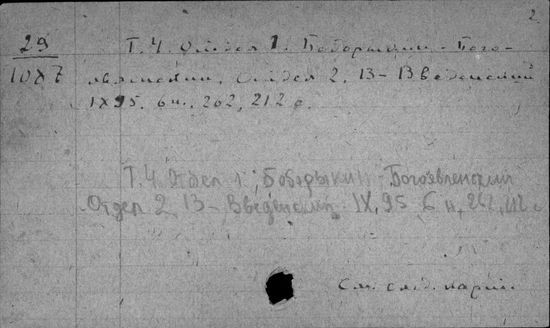 2
29
10X7
Т. 4. Отдел 1. Боборыкин - Бого-
явленский, Отдел 2, 13 - Введенский
IX, 95. 6 н., 262, 212 с.
Т. 4 Отдел 1, Боборыкин - Богоявленский
Отдел 2, 13 - Введенский. IX, 95 6 н, 262, 212 с
См. след. карт.